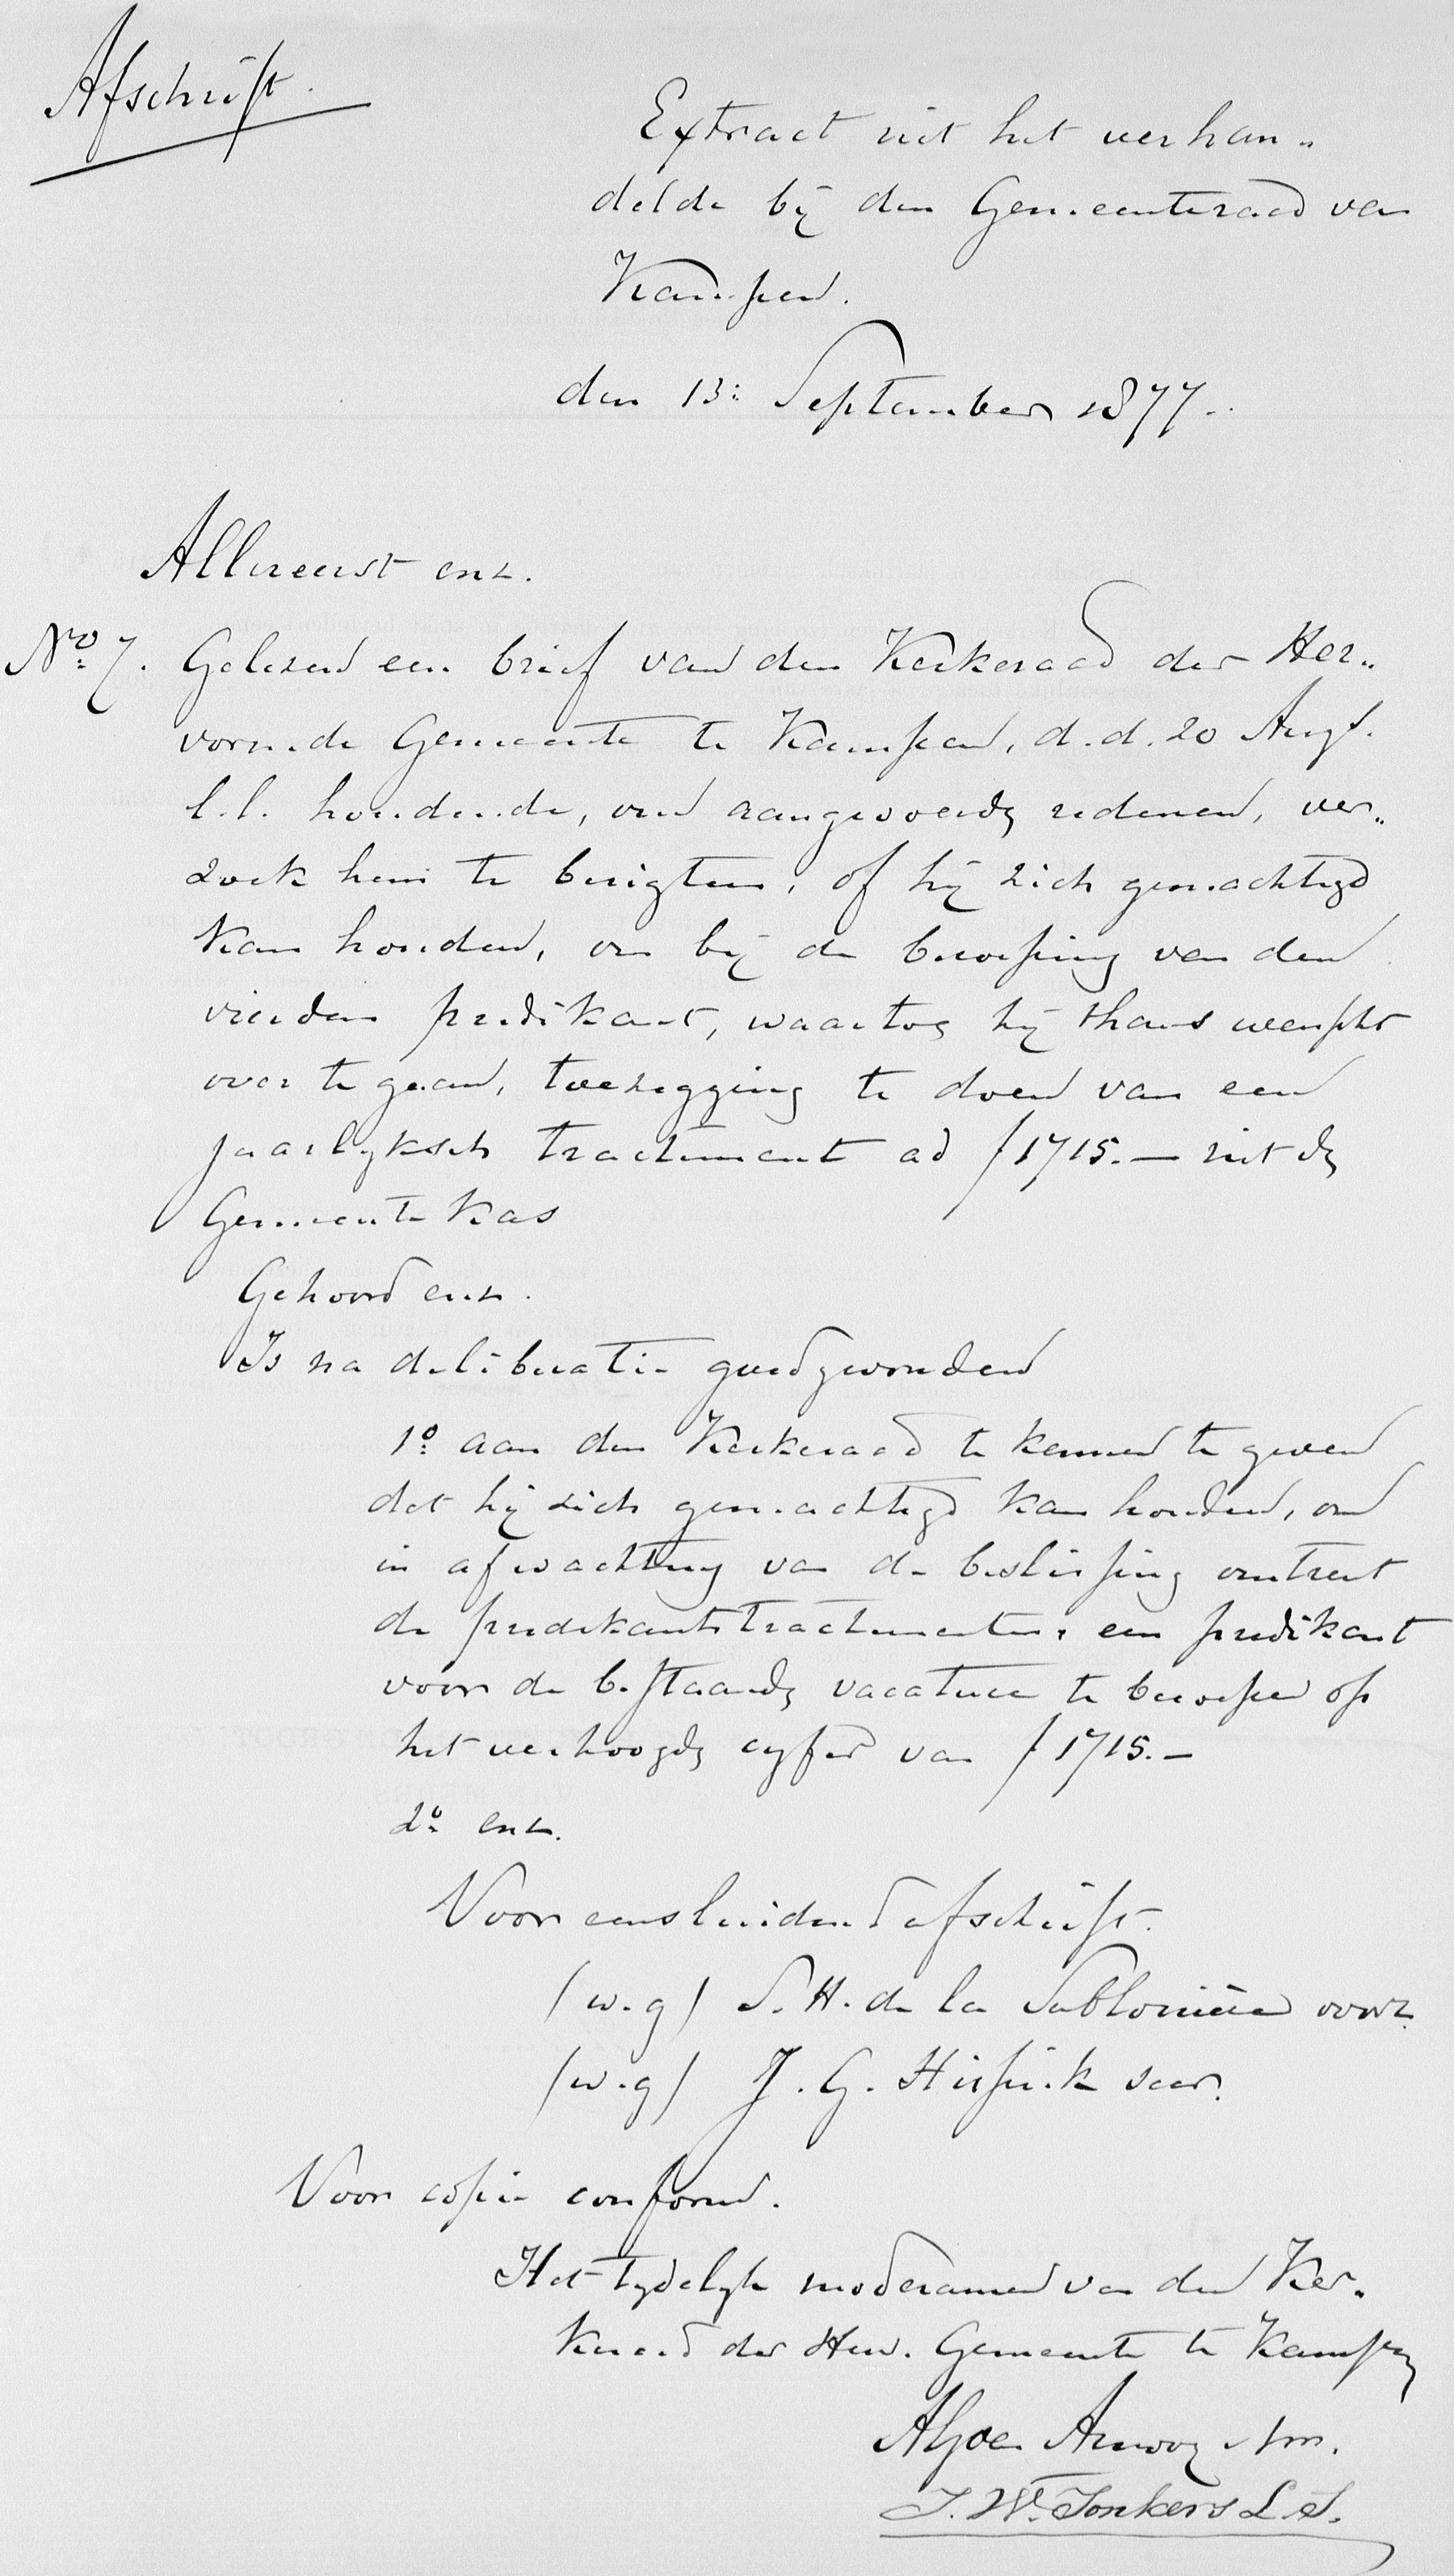 Afschrift.
Extract uit het verhan„
delde bij den Gemeenteraad van
Kampen.
den 13: September 1877.
Allereerst enz.
No: 7. Gelezen een brief van den Kerkeraad der Her„
vormde Gemeente te Kampen, d.d. 20 Augs.
l.l. houdende, om aangevoerde redenen, ver„
zoek hem te berigten, of hij zich gemachtigd
kan houden, om bij de beroeping van den
vierden predikant, waartoe hij thans wenscht
over te gaan, toezegging te doen van een
jaarlyksch tractement ad ƒ1715.— uit de
Gemeente kas
Gehoord enz.
Is na deliberatie goedgevonden
1o: aan den Kerkeraad te kennen te geven
dat hij zich gemachtigd kan houden, om
in afwachting van de beslissing omtrent
de predikantstractementen een predikant
voor de bestaande vacature te beroepen op
het verhoogde cyfer van ƒ1715.—
2o: enz.
Voor eensluidend afschrift.
(w.g) S. H. de la Sablonière voorz.
(w.g) J. G. secr.
Voor copie conform.
Het tydelyk moderamen van den Ker„
keraad der Herv. Gemeente te Kampen
J. W. Jonkers L. S.